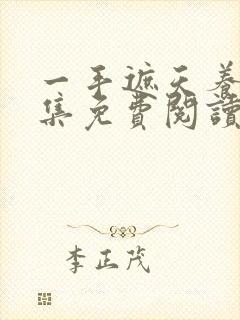 一手遮天養
集免費閱讀
李正茂